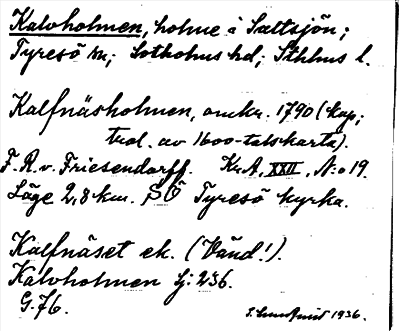 Kalvholmen, holme i Saltsjön;
Tyresö sn; Sotholms hd; Sthlms l.
Kalfnäsholmen, omkr. 1790 (kop;
trol. av 1600-talskarta).
F. R. v. Friesendorff. Kr.A, XXII, N:o 19.
Läge 2,8 km. SÖ Tyresö kyrka.
Kalfnäset ek. (Vänd!).
Kalvholmen Ij: 236.
G. 76.
1936.